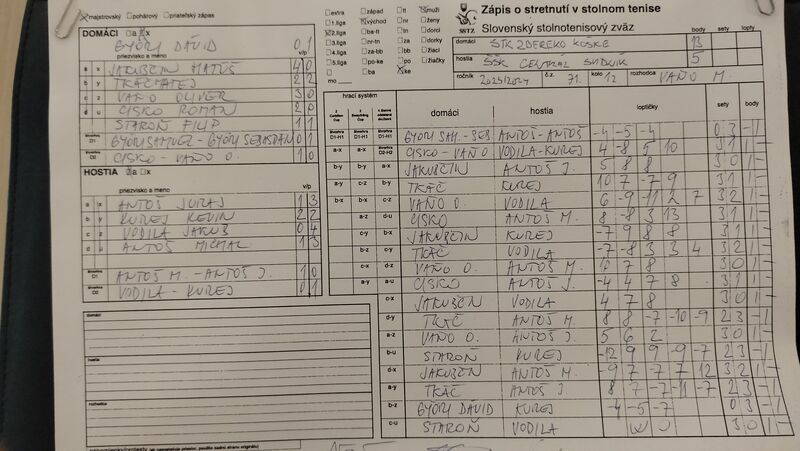 majstrovský pohárový priateľský zápas
extra západ tt muži
1.liga východ nr ženy
2.liga bb-tt za dorci
3.liga nr-tn za dorky
4.liga za-bb bb žiaci
5.liga po-ke po žiačky
ba ke
mo
SSTZ
Zápis o stretnutí v stolnom tenise
Slovenský stolnotenisový zväz
body sety
domáci STK ZBEREKO KOŠKÉ 13
hostia ŠŠK CENTRAL SVIDNÍK 5
ročník 2023/2024 č.z. 71. kolo 12 rozhodca VAŇO M.
DOMÁCI a x
GYÖRI DÁVID 0 1
priezvisko a meno v/p
a x JAKUBČIN MATÚŠ 4 0
b y TKÁČ MATEJ 2 2
c z VAŇO OLIVER 3 0
d u CISKO ROMAN 2 0
STAROŇ FILIP 1 1
štvorhra D1 GYÖRI SAMUEL - GYÖRI SEBASTIÁN 0 1
štvorhra D2 CISKO - VAŇO O. 1 0
HOSTIA a x
priezvisko a meno v/p
a x ANTOŠ JURAJ 1 3
b y KUREJ KEVIN 2 2
c z VODILA JAKUB 0 4
d u ANTOŠ MICHAL 1 3
štvorhra D1 ANTOŠ M. - ANTOŠ J. 1 0
štvorhra D2 VODILA - KUREJ 0 1
domáci
hostia
rozhodca
hrací systém domáci hostia loptičky sety body
štvorhra D1-H1 štvorhra D1-H1 štvorhra D1-H1 GYÖRI SAM. - SEB ANTOŠ - ANTOŠ -4 -5 -4 0 3 - 1
a-x a-x štvorhra D2-H2 CISKO - VAŇO VODILA - KUREJ 4 -8 5 10 3 1 1 -
b-y b-y a-x JAKUBČIN ANTOŠ J. 5 8 8 3 0 1 -
a-y c-z b-y TKÁČ KUREJ 10 7 -7 9 3 1 1 -
b-x b-x c-z VAŇO O. VODILA 6 -9 -11 2 7 3 2 1 -
a-z d-u CISKO ANTOŠ M. 8 -8 3 13 3 1 1 -
c-y b-x JAKUBČIN KUREJ -7 9 8 8 3 1 1 -
b-z c-y TKÁČ VODILA -7 -8 3 3 4 3 2 1 -
c-x d-z VAŇO O. ANTOŠ M. 10 7 8 3 0 1 -
a-y a-u CISKO ANTOŠ J. -4 4 7 8 3 1 1 -
c-x JAKUBČIN VODILA 4 7 8 3 0 1 -
d-y TKÁČ ANTOŠ M. 8 8 -7 -10 -9 2 3 - 1
a-z VAŇO O. ANTOŠ J. 5 6 2 3 0 1 -
b-u STAROŇ KUREJ -12 9 9 -9 -7 2 3 - 1
d-x JAKUBČIN ANTOŠ M. -9 7 -7 7 12 3 2 1 -
a-y TKÁČ ANTOŠ J. 8 7 -7 -11 -7 2 3 - 1
b-z GYÖRI DÁVID KUREJ -4 -5 -7 0 3 - 1
c-u STAROŇ VODILA 3 0 1 -